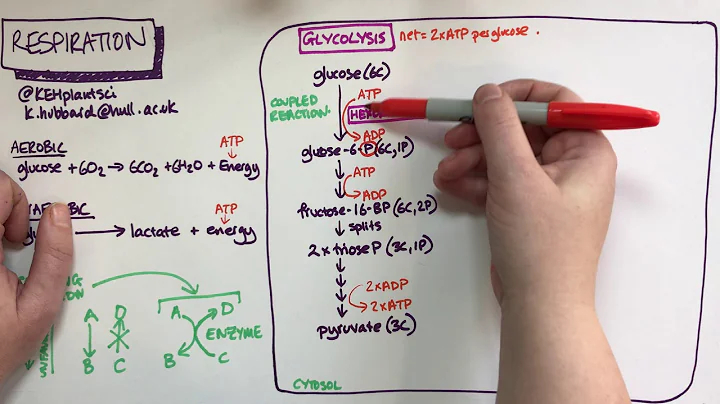 RESPIRATION
@KEHplantsci
k.hubbard@hull.ac.uk
AEROBIC
ATP
glucose + 6O₂ → 6CO₂ + 6H₂O + Energy
ATP
→ lactate + energy
A D
B C
A D
ENZYME
B C
GLYCOLYSIS net = 2xATP per glucose.
glucose (6C)
COUPLED
REACTION.
ATP
ADP
glucose-6-P (6C, 1P)
ATP
ADP
fructose-16-BP (6C, 2P)
splits
2 x triose P (3C, 1P)
2xADP
2xATP
pyruvate (3C)
CYTOSOL